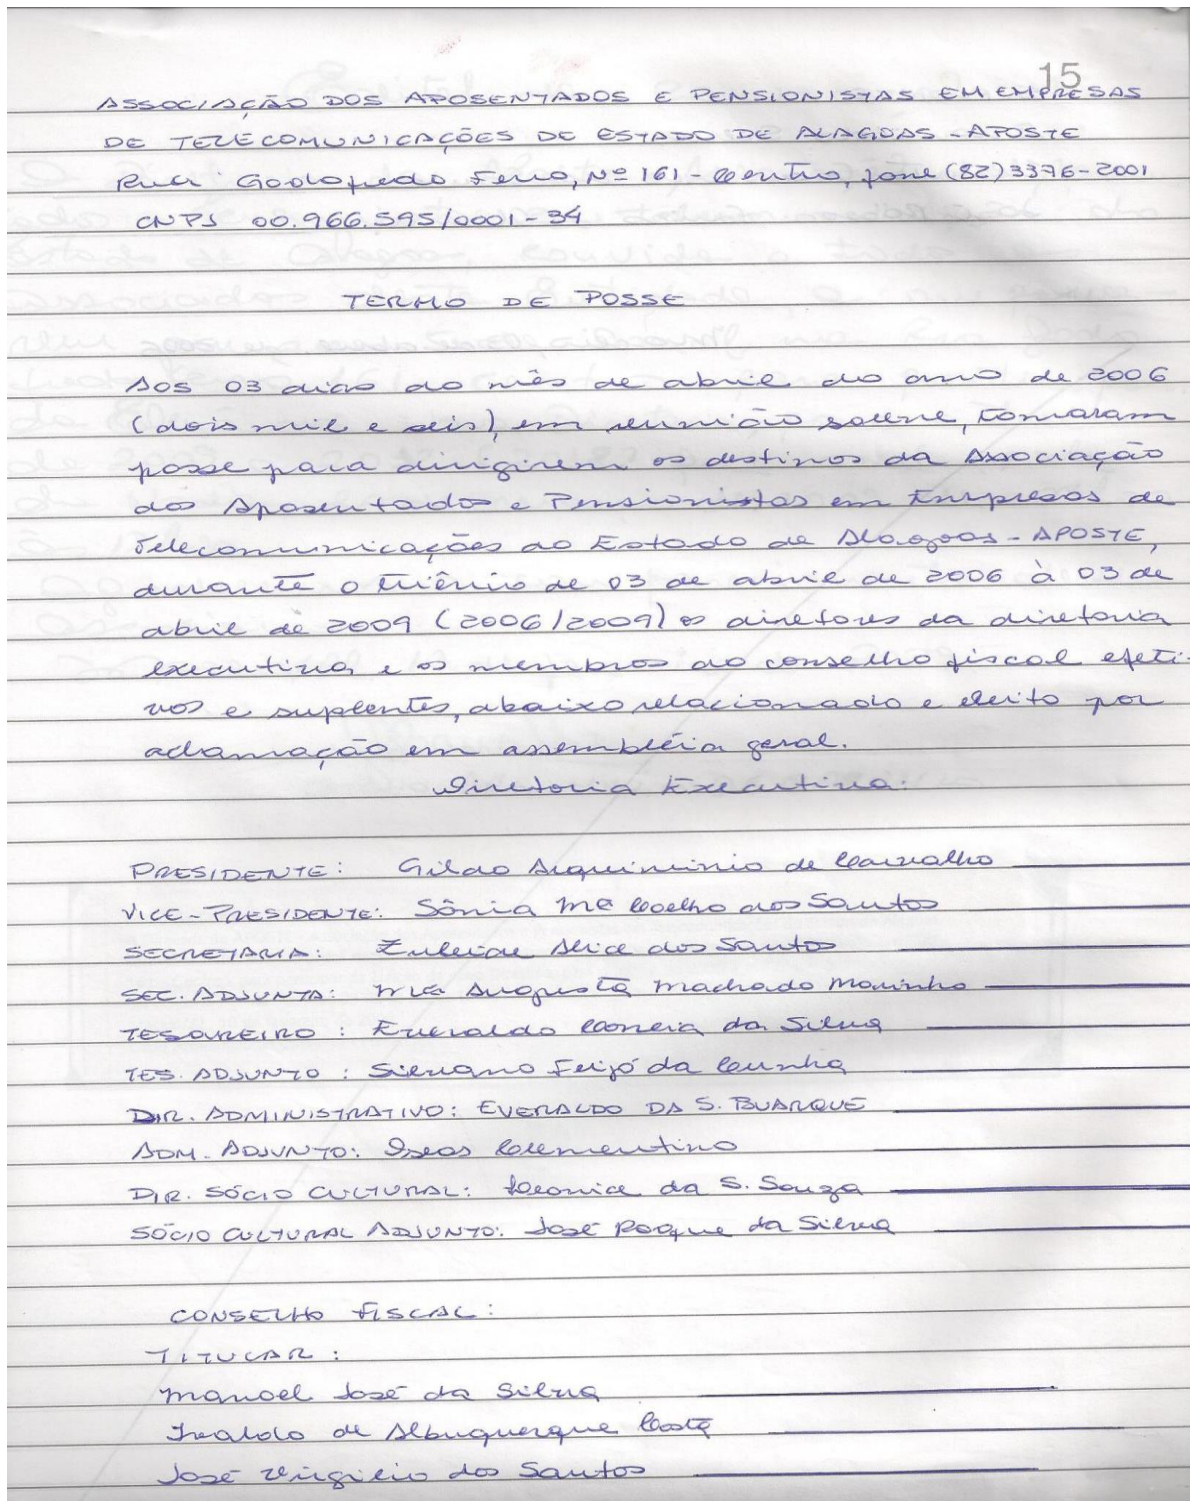 15
ASSOCIAÇÃO DOS APOSENTADOS E PENSIONISTAS EM EMPRESAS
DE TELECOMUNICAÇÕES DE ESTADO DE ALAGOAS - APOSTE
Rua Godofredo Ferro, Nº 161 - Centro, fone (82) 3376-2001
CNPJ 00.966.595/0001-34
TERMO DE POSSE
Aos 03 dias do mês de abril do ano de 2006
(dois mil e seis), em reunião solene, tomaram
posse para dirigirem os destinos da Associação
dos Aposentados e Pensionistas em Empresas de
Telecomunicações do Estado de Alagoas - APOSTE,
durante o triênio de 03 de abril de 2006 à 03 de
abril de 2009 (2006/2009) os diretores da diretoria
executiva e os membros do conselho fiscal efeti-
vos e suplentes, abaixo relacionado e eleito por
aclamação em assembléia geral.
Diretoria Executiva:
PRESIDENTE: Gildo Arquiminio de Carvalho
VICE-PRESIDENTE: Sônia Mª Coelho dos Santos
SECRETARIA: Zuleide Alice dos Santos
SEC. ADJUNTA: Mª Augusta Machado Marinho
TESOUREIRO: Everaldo Correia da Silva
TES. ADJUNTO: Silvano Feijó da Cunha
DIR. ADMINISTRATIVO: EVERALDO DA S. BUARQUE
ADM. ADJUNTO: Clementino
DIR. SÓCIO CULTURAL: Cleonice da S. Souza
SÓCIO CULTURAL ADJUNTO: José Roque da Silva
CONSELHO FISCAL:
TITULAR:
Manoel José da Silva
Ivaldo de Albuquerque Costa
José Virgilio dos Santos